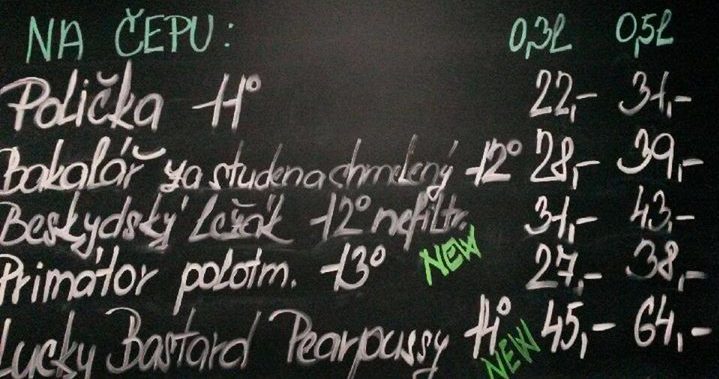 NA ČEPU: 0,3l 0,5l
Polička 11° 22,- 31,-
Bakalář za studena chmelený 12° 28,- 39,-
Beskydský Ležák 12° nefiltr. 31,- 43,-
Primátor polotm. 13° NEW 27,- 38,-
Lucky Bastard Pearpussy 11° NEW 45,- 64,-